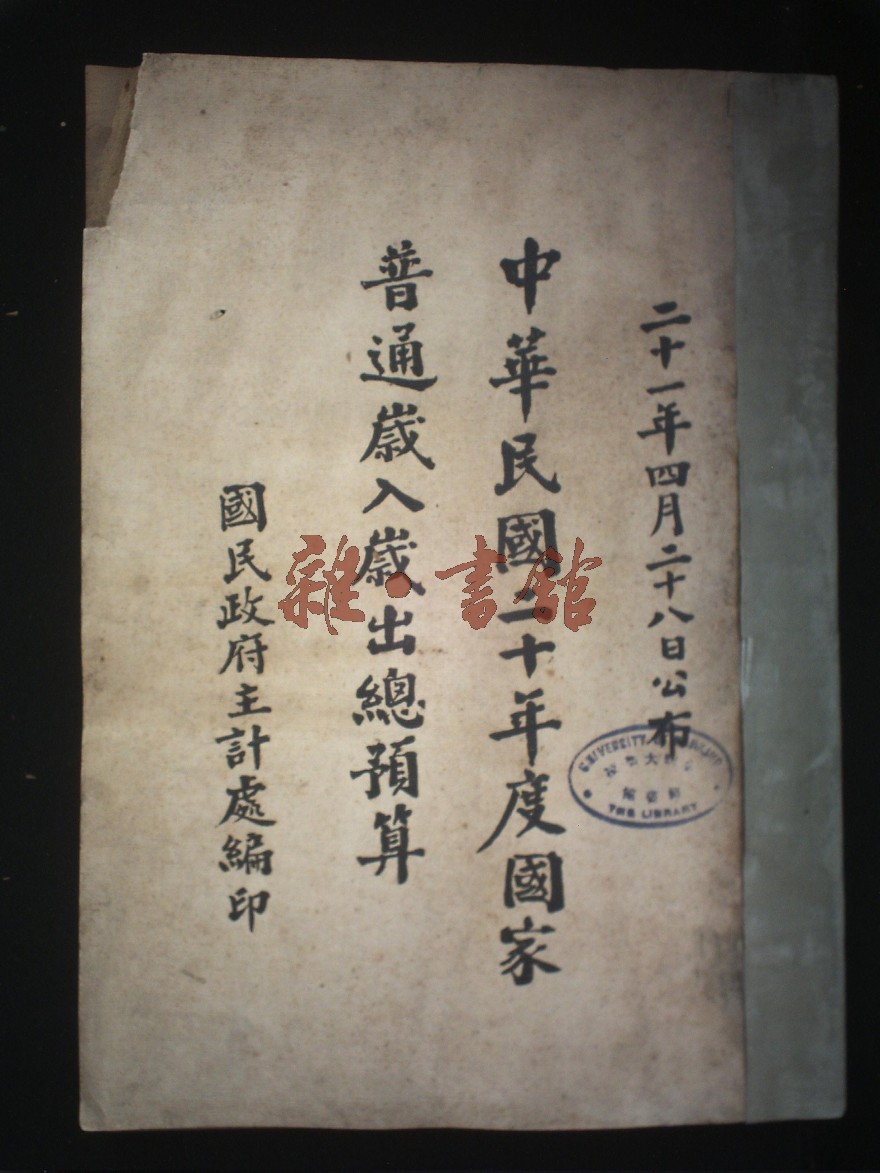 二十一年四月二十八日公布
中華民國二十年度國家
普通歲入歲出總預算
國民政府主計處編印
雜·書館
UNIVERSITY
THE LIBRARY